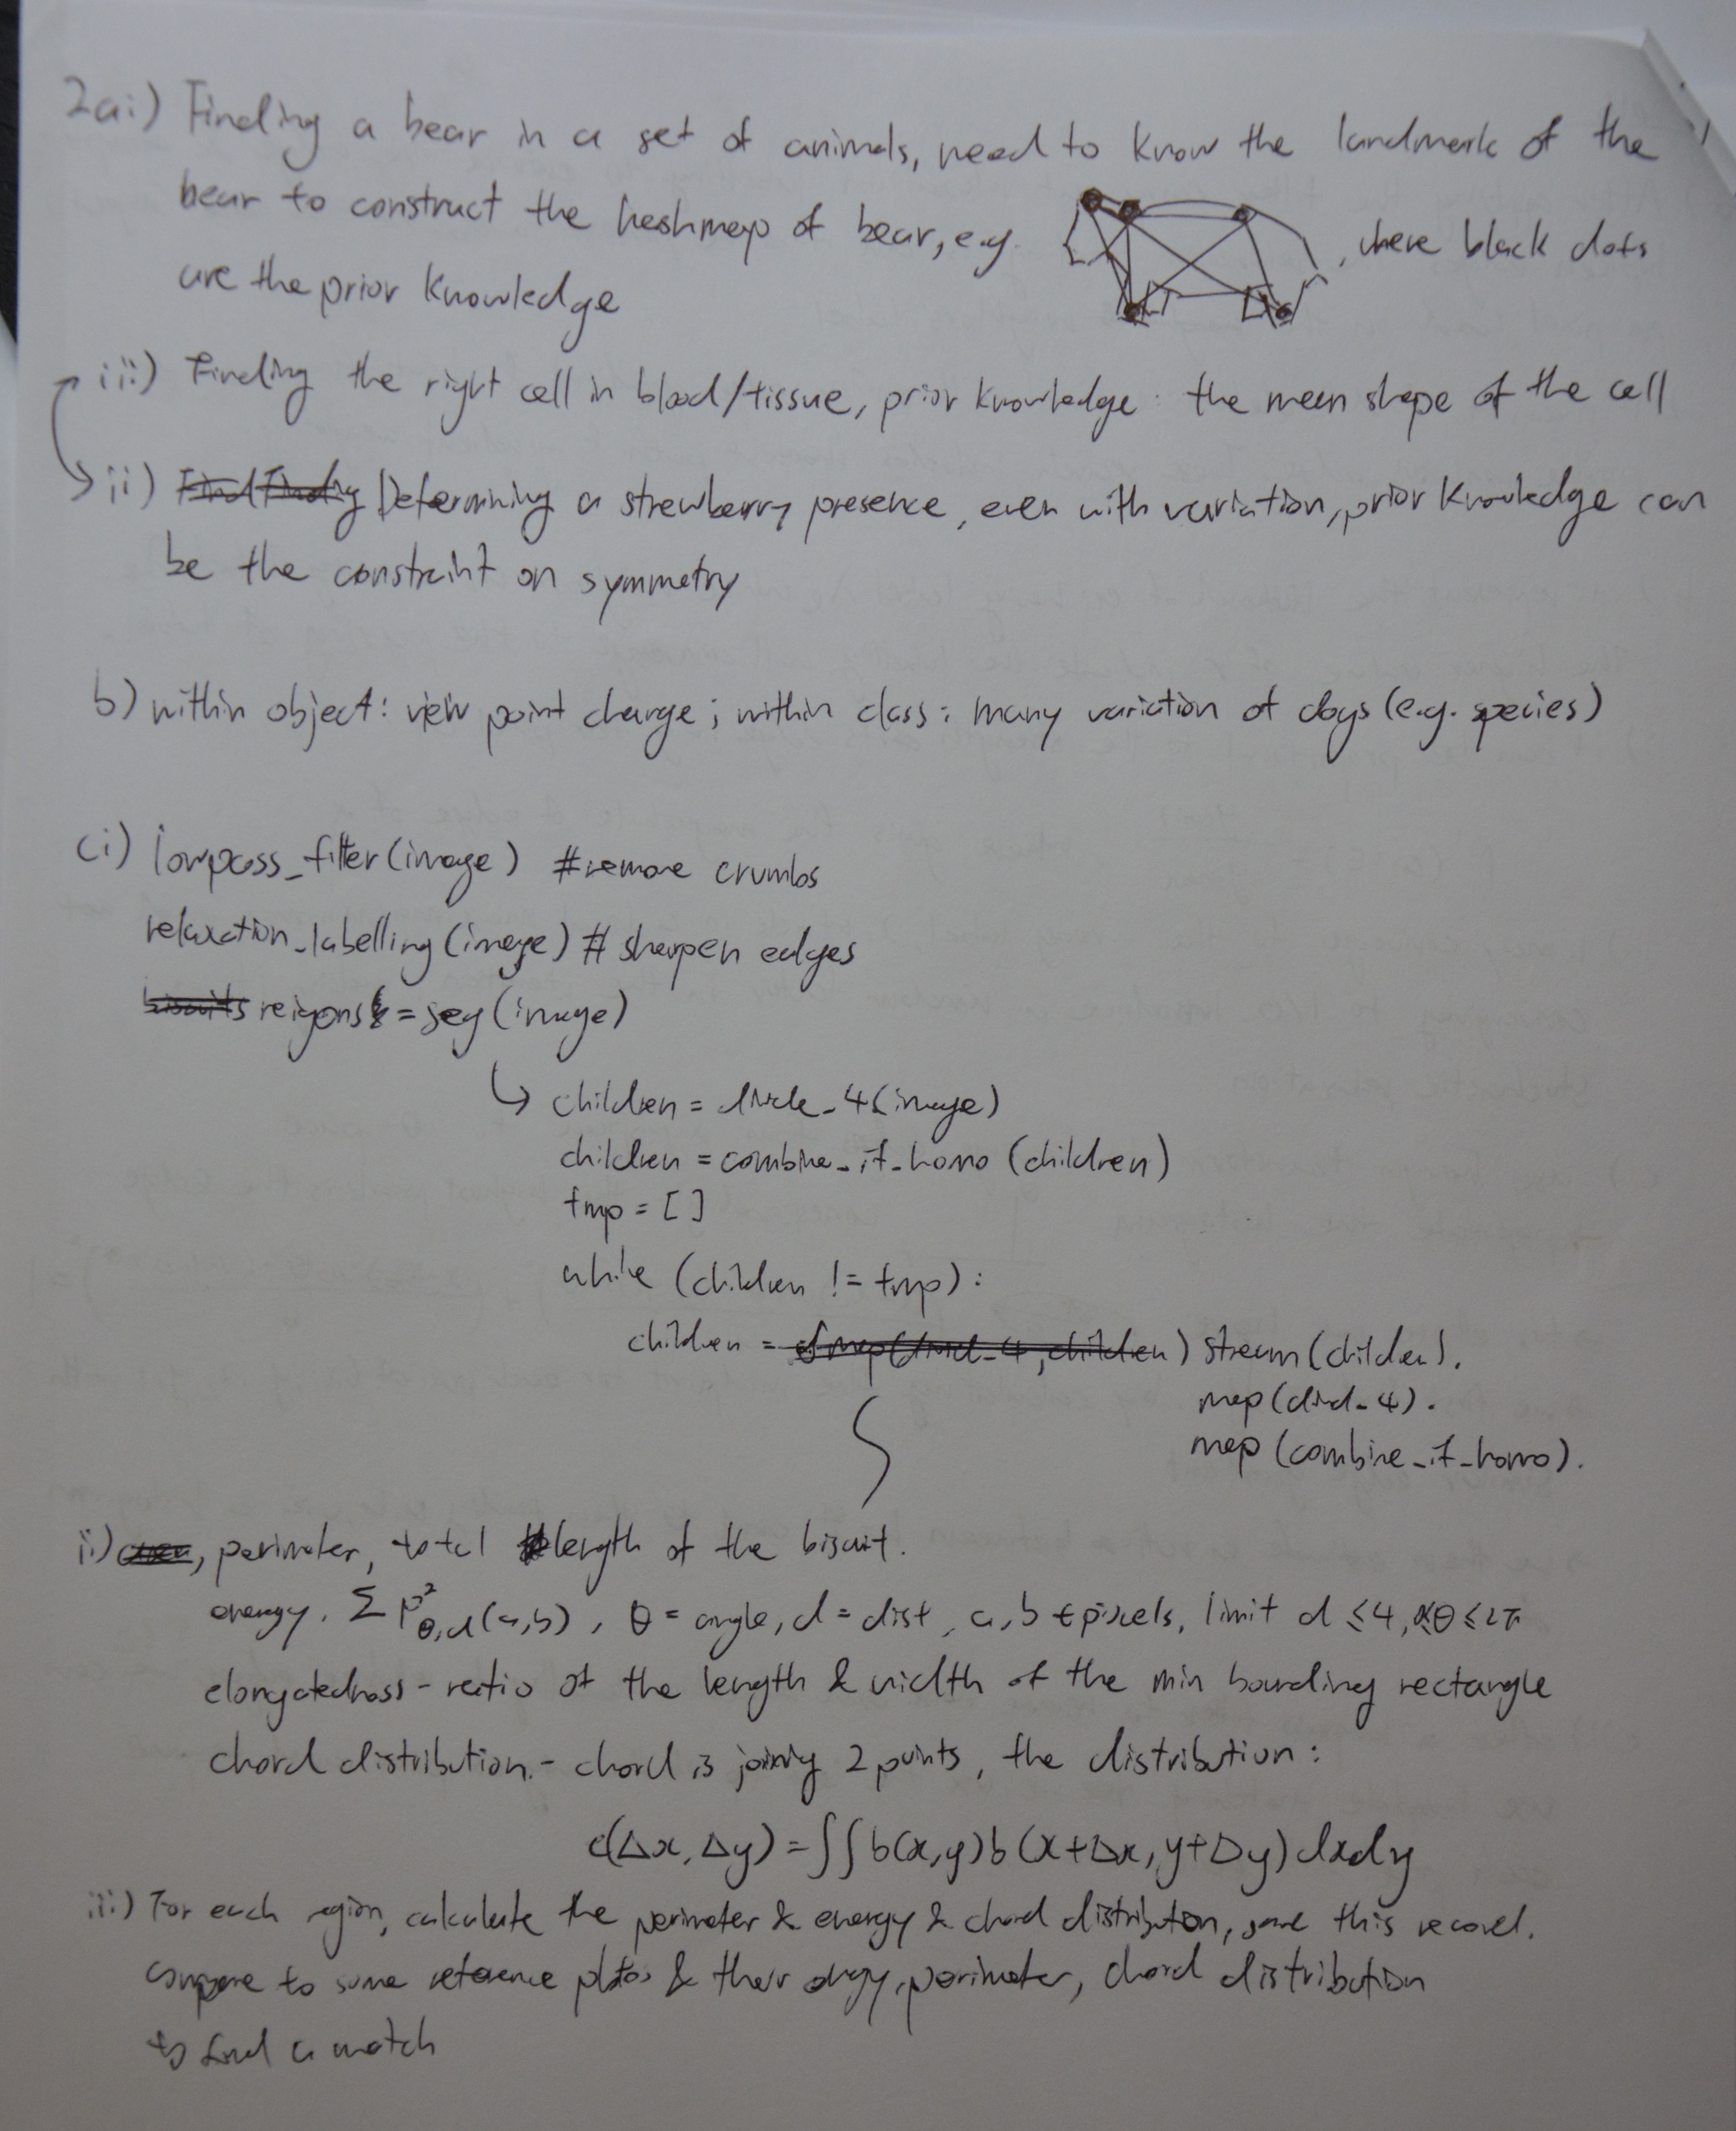 2ai) Finding a bear in a set of animals, need to know the landmark of the
bear to construct the hashmap of bear, e.g. , where black dots
are the prior knowledge
iii) Finding the right cell in blood/tissue, prior knowledge: the mean shape of the cell
ii) Find Finding Determining a strawberry presence, even with variation, prior knowledge can
be the constraint on symmetry
b) within object: view point change; within class: many variation of dogs (e.g. species)
ci) lowpass_filter(image) #remove crumbs
relaxation_labelling(image) # sharpen edges
biscuits reigons = seg(image)
↳ children = divide_4(image)
children = combine_if_homo (children)
tmp = []
while (children != tmp):
children = map(divid_4, children) stream(children).
map(divid_4).
map(combine_if_homo).
ii) area, perimeter, total length of the biscuit.
energy, Σ P²θ,d(a,b), θ = angle, d = dist, a,b ∈ pixels, limit d ≤4, 0≤θ≤2π
elongatedness - ratio of the length & width of the min bounding rectangle
chord distribution - chord is joining 2 points, the distribution:
c(Δx, Δy) = ∫∫ b(x,y)b(x+Δx, y+Δy) dxdy
iii) For each region, calculate the perimeter & energy & chord distribution, save this record.
compare to some reference & their energy, perimeter, chord distribution
to find a match